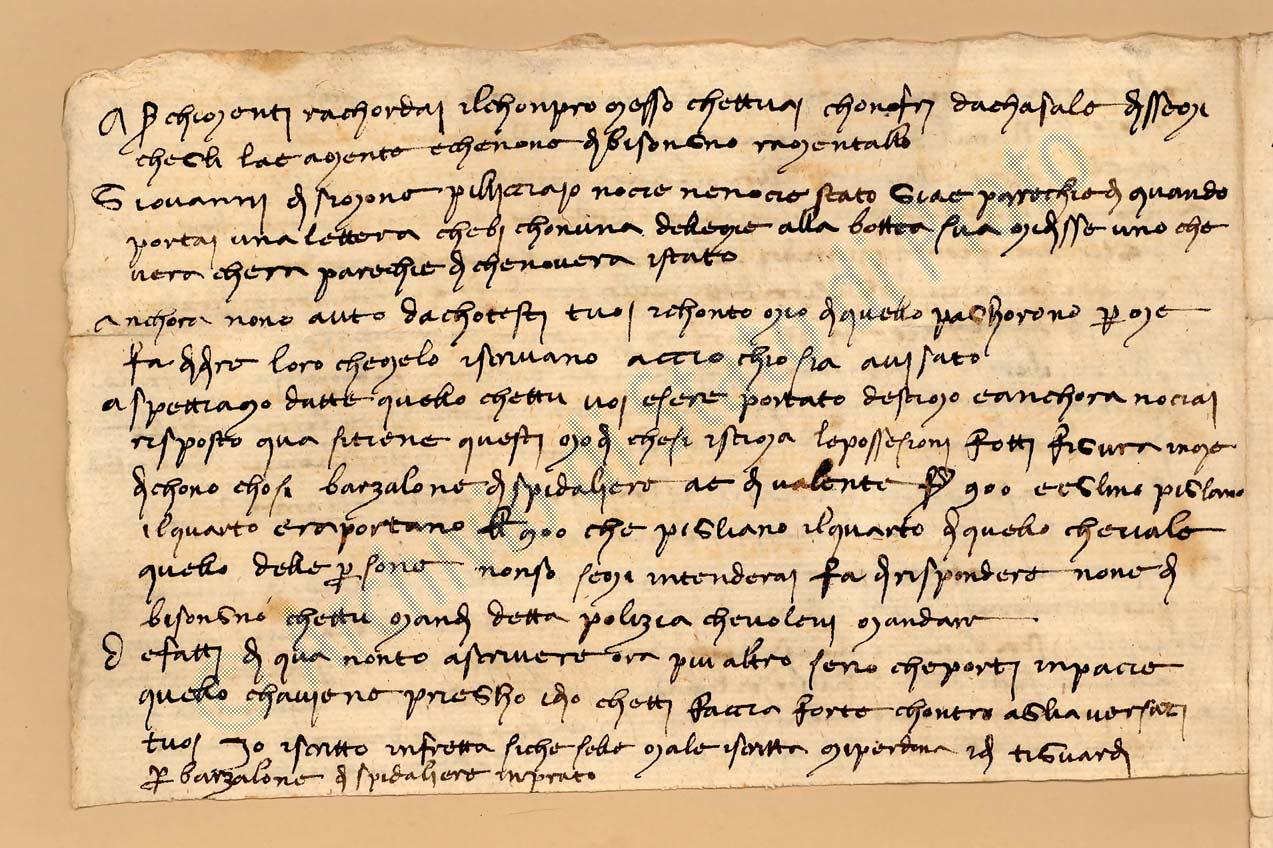 A per chimenti rachordai ilchonpromesso chettuai chonofri dachasale dissemi
chegli lae amente echenone dibisongno ramentallo
Giovanni di simone pilliciaio nocie nenocie stato giae parechie di quando
portai una lettera chebi chonuna delleme alla bottea sua midisse uno che
vera cherra parechie di chenovera istato
anchora none auto dachotesti tuoi ichonto mio diquello paghorono per me
fa dire loro chemelo iscrivano accio chio sia avisato
aspettiamo dutte quello chettu uoi esere portato destimo eanchora nociai
risposto qua sitiene questi modi chesi istima lepossesioni fotti figura inme
dichono chosi barzalone dispidaliere ae di valente 900 eeglino pigliano
ilquarto eraportano 900 che pigliano ilquarto diquello chevale
quello delle persone nonso semi intenderai fa dirispondere none di
bisongno chettu mandi detta polizia chevolevi mandare
defatti di qua nonto ascrivere ora piu altro seno cheporti inpacie
quello chaviene priegho idio chetti faccia forte chontro agliaversari
tuoi Io iscritto infretta siche selle male iscritta miperdona idio tiguardi
per barzalone dispidaliere inprato